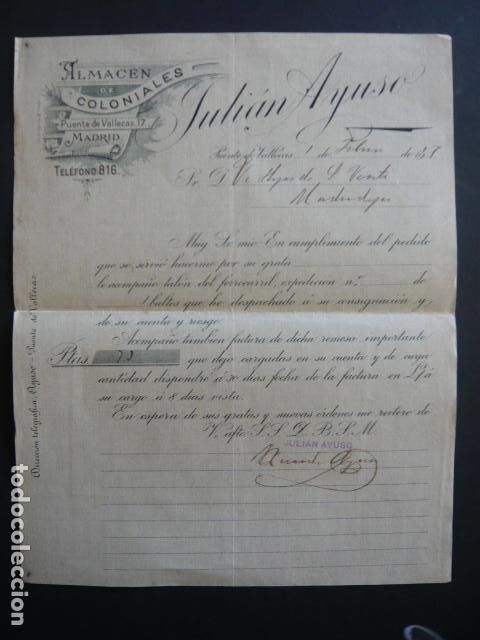 ALMACEN
DE
COLONIALES
Puente de Vallecas, 17.
MADRID.
TELÉFONO 816.
Julián Ayuso
Puente de Vallecas 1 de de
Sr. D. de
Madridejos
Muy Sr. mio: En cumplimiento del pedido
que se sirvió hacerme por su grata
le acompaño talón del ferrocarril, expedición n.º de
bultos que he despachado á su consignación y
de su cuenta y riesgo.
Acompaño tambien factura de dicha remesa importante
Ptas. que dejo cargadas en su cuenta y de cuya
cantidad dispondré á 30 dias fecha de la factura en L/ á
su cargo á 8 dias vista.
En espera de sus gratas y nuevas órdenes me reitero de
V. afto. S. S. Q. B. S. M.
JULIÁN AYUSO
Dirección telegráfica, Ayuso - Puente de Vallecas.
todocoleccion